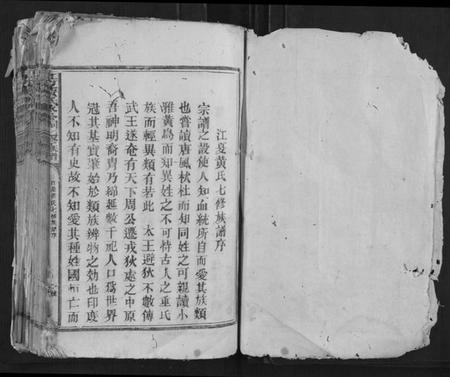 江夏黃氏七修族譜序
宗譜之設使人知血統所自而愛其族類
也嘗讀唐風杕杜而知同姓之可親讀小
雅黃鳥而知異姓之不可恃古人之重氏
族而輕異類有若此 太王避狄不數傳
武王遂奄有天下周公遷戎狄處之中原
吾神明裔冑乃綿延數千祀人口爲世界
冠其基實肇始於類族辨物之効也印度
人不知有史故不知愛其種姓國亡而